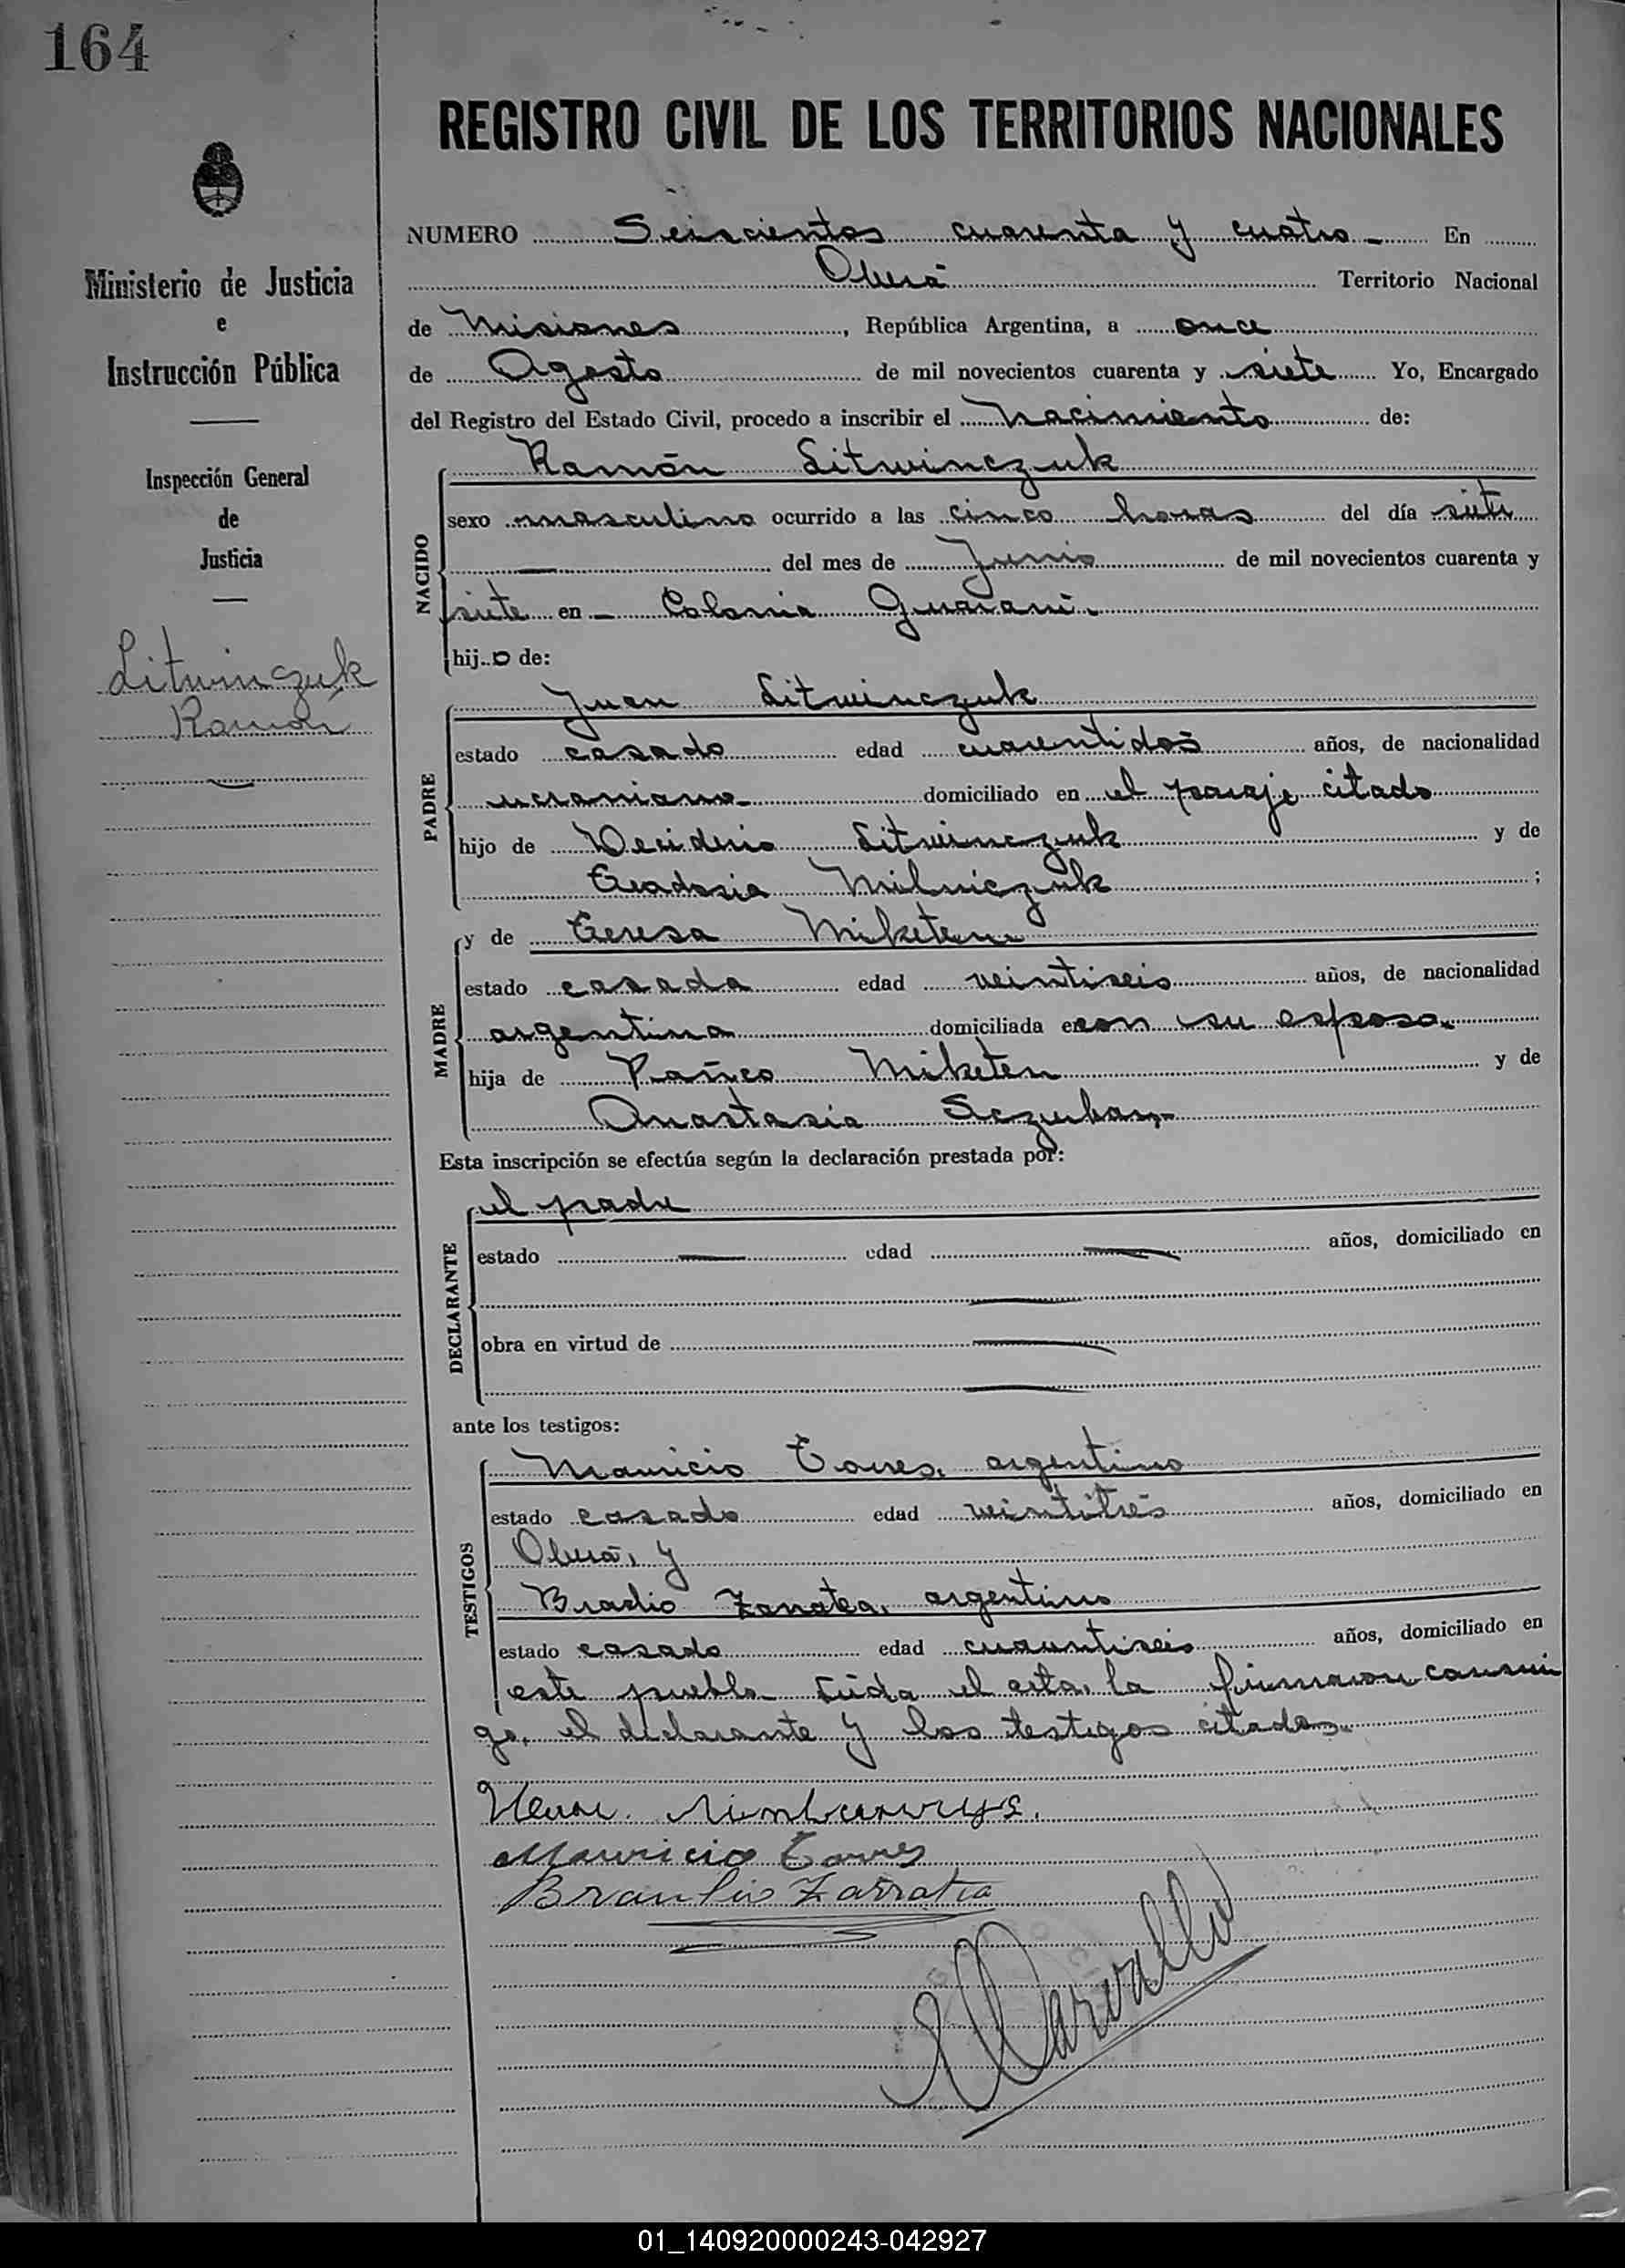 164
REGISTRO CIVIL DE LOS TERRITORIOS NACIONALES
Ministerio de Justicia
e
Instrucción Pública
Inspección General
de
Justicia
Litwinczuk
Ramón
NUMERO Seiscientos cuarenta y cuatro - En
Oberá Territorio Nacional
de Misiones, República Argentina, a once
de Agosto de mil novecientos cuarenta y siete Yo, Encargado
del Registro del Estado Civil, procedo a inscribir el nacimiento de:
NACIDO
Ramón Litwinczuk
sexo masculino ocurrido a las cinco horas del día siete
— del mes de Junio de mil novecientos cuarenta y
siete en - Colonia Guaraní.
hijo de:
PADRE
Juan Litwinczuk
estado casado edad cuarentidos años, de nacionalidad
ucraniano - domiciliado en el paraje citado
hijo de Desiderio Litwinczuk y de
Teodosia ;
MADRE
y de Teresa Miketen
estado casada edad veintiseis años, de nacionalidad
argentina domiciliada en con su esposo.
hija de Miketen y de
Anastasia
Esta inscripción se efectúa según la declaración prestada por:
DECLARANTE
el padre
estado — edad — años, domiciliado en
—
obra en virtud de —
—
ante los testigos:
TESTIGOS
Mauricio Torres, argentino
estado casado edad veintitrés años, domiciliado en
Oberá, y
Braulio Zarratea, argentino
estado casado edad cuarentiseis años, domiciliado en
este pueblo. Leída el acta, la firmaron conmi
go, el declarante y los testigos citados.
Mauricio Torres
Braulio Zarratea
Carvallo
01_140920000243-042927